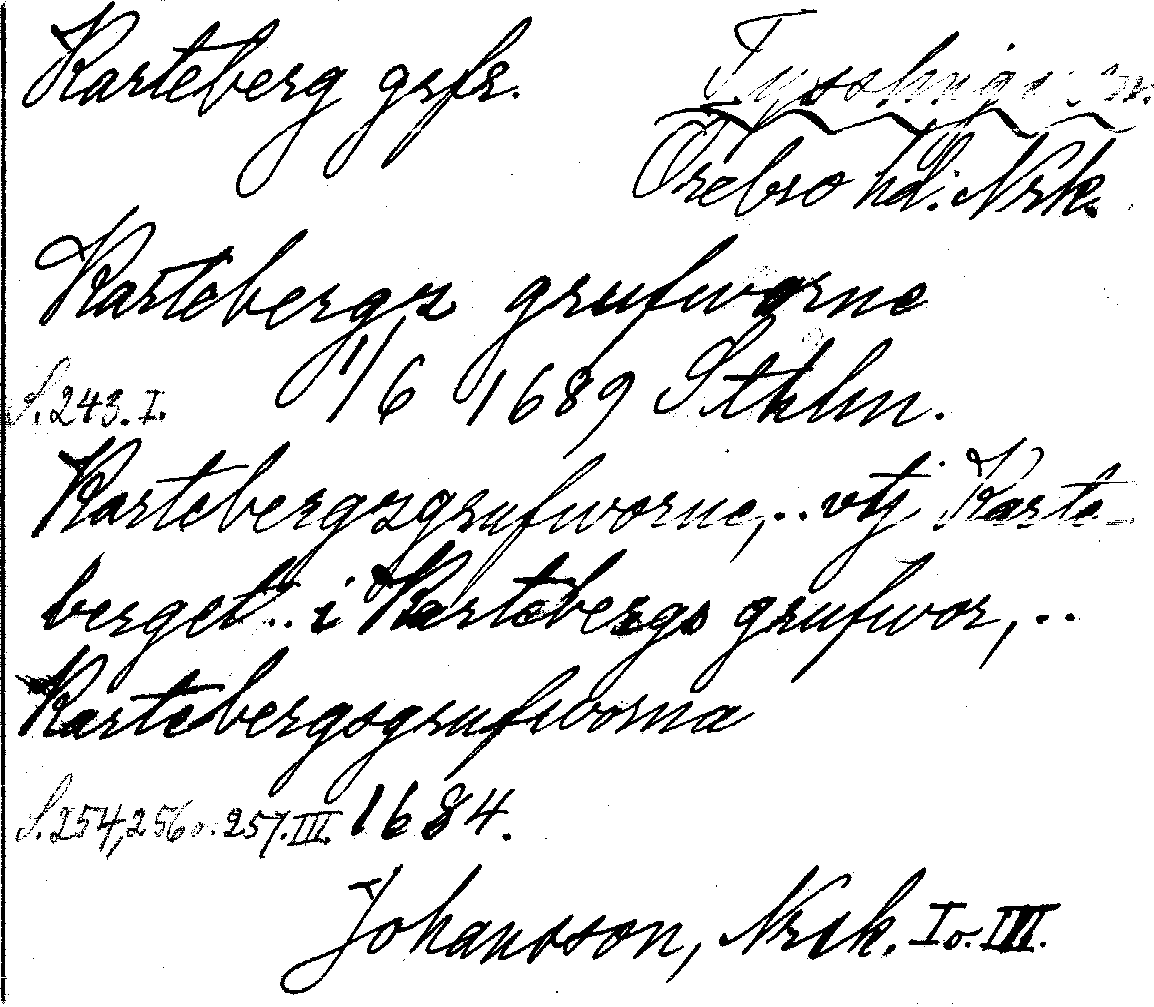 Karteberg grfr. Tysslinge sn.
Örebro hd. Nrk.
Kartebergz grufworne
S. 243. I. 1/6 1689 Sthlm.
Kartebergzgrufworne,.. vtj Karte-
berget.. i Kartebergs grufwor,..
Kartebergsgrufworna
S. 254, 256 o. 257. III. 1684.
Johansson, Nrik. I o. III.